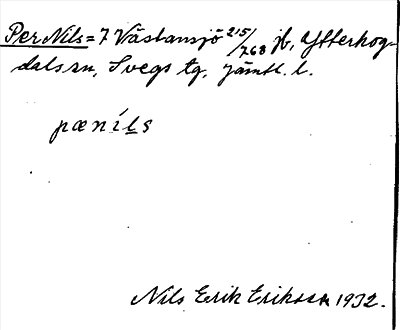 Per Nils = 7 Västansjö 215/768 jb, Ytterhog-
dals sn, Svegs tg, Jämtl. l.
pæníls
Nils Erik Eriksson 1932.